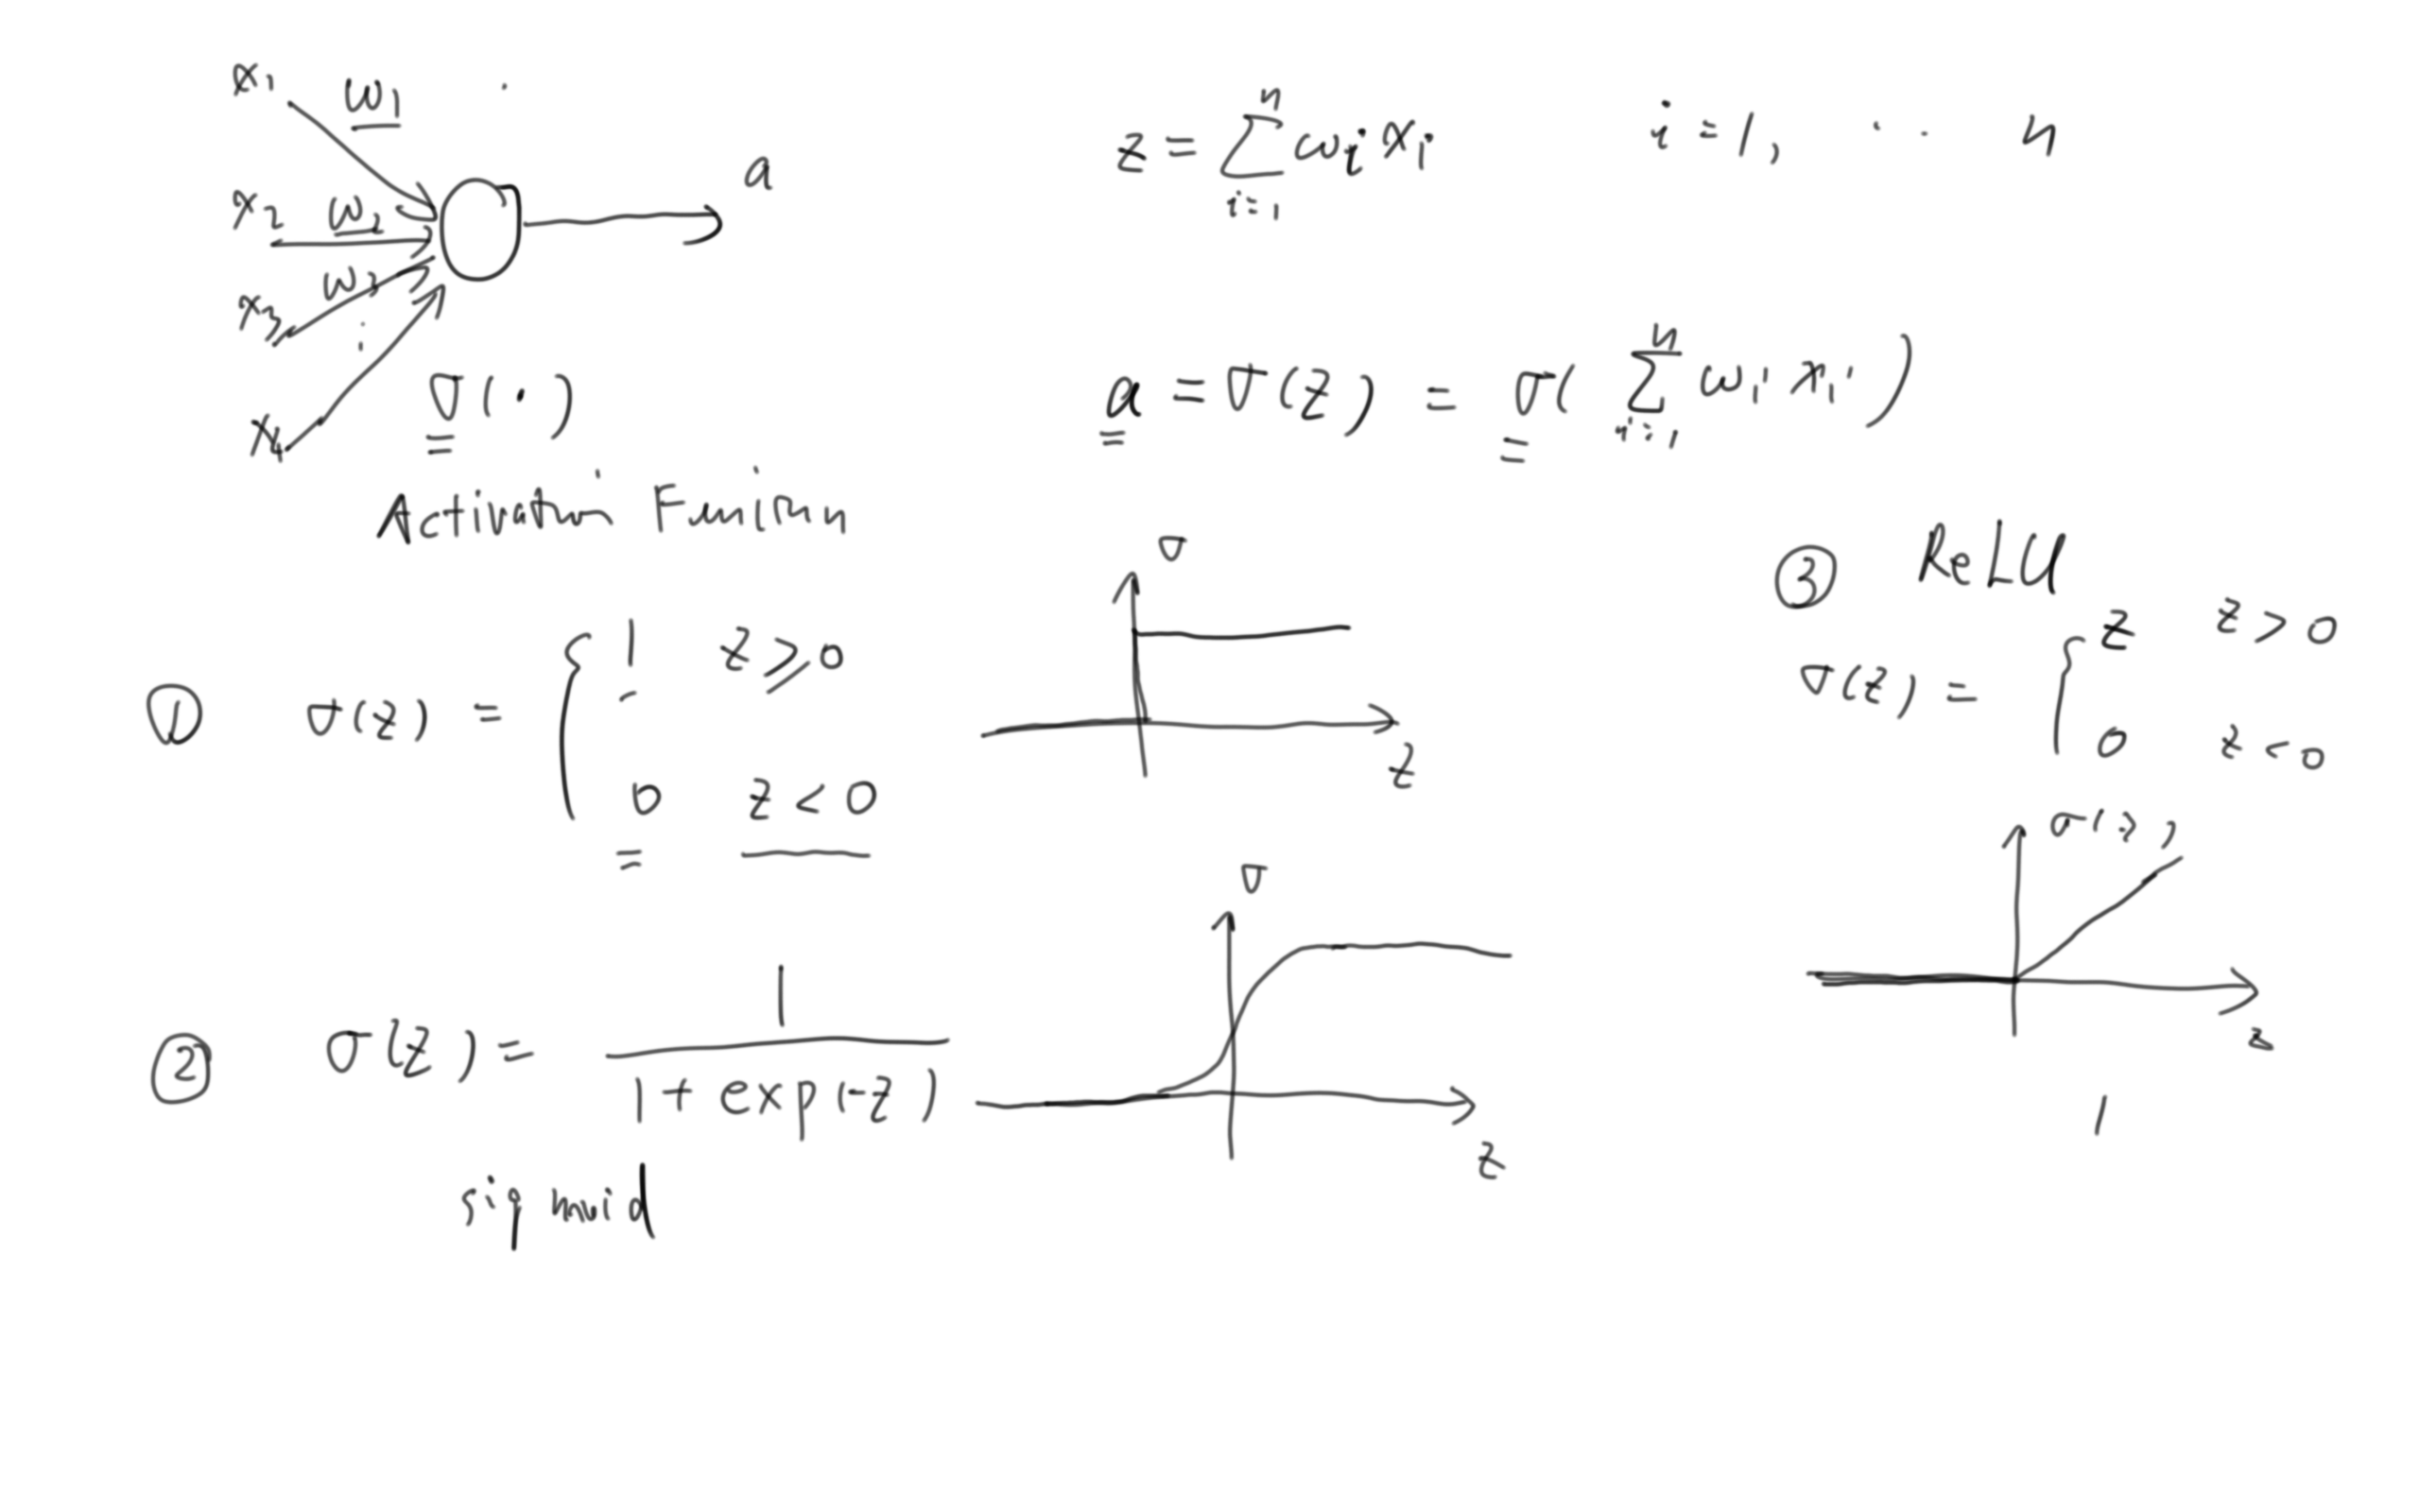 x₁ w₁
x₂ w₂
x₃ w₃
x₄
a
σ(·)
Activation Function
z = ∑ᵢ₌₁ⁿ wᵢ xᵢ i = 1, · · n
a = σ(z) = σ( ∑ᵢ₌₁ⁿ wᵢ xᵢ )
① σ(z) = { 1 z ≥ 0
0 z < 0
σ
z
② σ(z) = 1 / (1 + exp(-z))
sigmoid
σ
z
③ ReLU
σ(z) = { z z > 0
0 z < 0
σ(z)
z